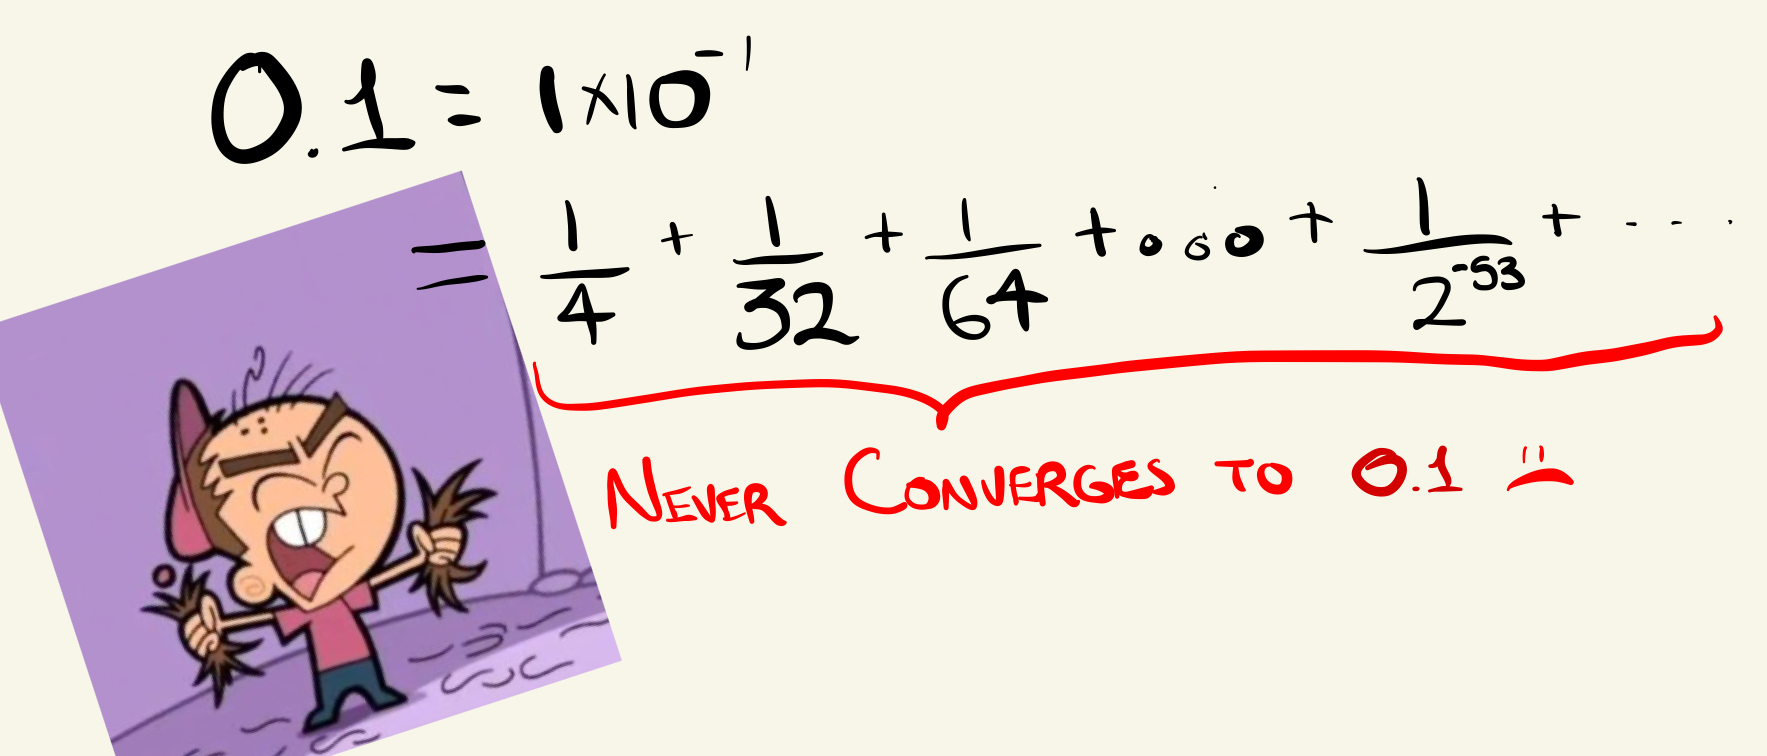 0.1 = 1×10⁻¹
= 1/4 + 1/32 + 1/64 + ... + 1/2⁻⁵³ + ....
NEVER CONVERGES TO 0.1 :(